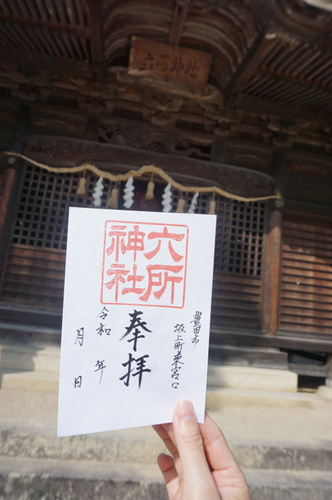 六所神社
六所
神社
豊田市
坂上町東宮口
奉拝
令和 年
月 日